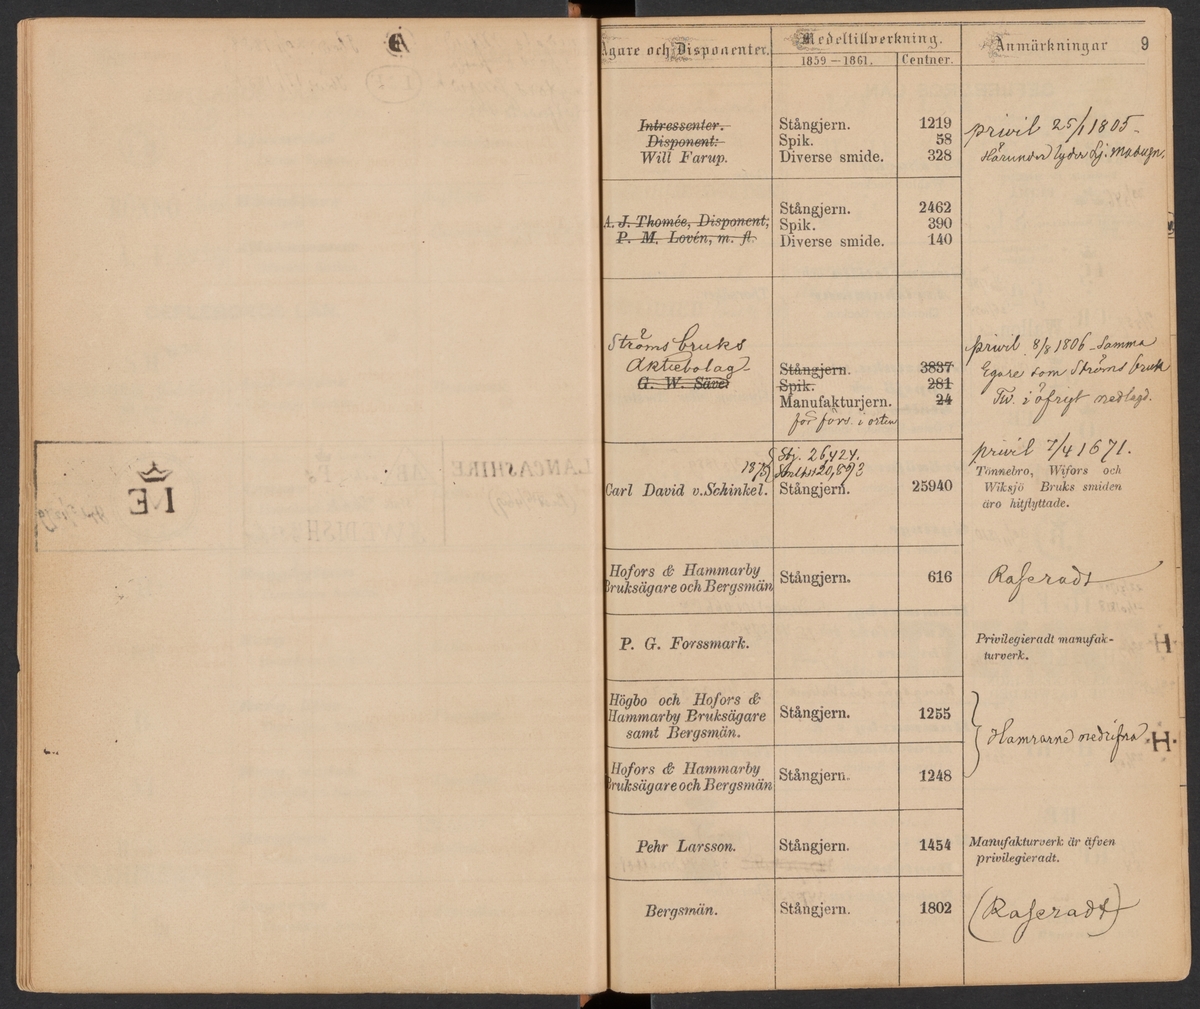 Ägare och Disponenter.
Medeltillverkning.
1859–1861.
Centner.
Anmärkningar
9
Intressenter.
Disponent:
Will Farup.
Stångjern. 1219
Spik. 58
Diverse smide. 328
privil 25/1 1805-
Härunder lyder
A. J. Thomée, Disponent,
P. M. Lovén, m. fl.
Stångjern. 2462
Spik. 390
Diverse smide. 140
Ströms bruks
Aktiebolag
G. W. Säve
Stångjern. 3837
Spik. 281
Manufakturjern. 24
för förs. i orten
privil 8/8 1806 - Samma
Egare som Ströms bruk
Tv. i öfrigt nedlagd.
1875
Stj. 26424.
Carl David v. Schinkel.
Stångjern. 25940
privil 7/4 1671.
Tönnebro, Wifors och
Wiksjö Bruks smiden
äro hitflyttade.
Hofors & Hammarby
Bruksägare och Bergsmän
Stångjern. 616
Raseradt
P. G. Forssmark.
Privilegieradt manufak-
turverk.
Högbo och Hofors &
Hammarby Bruksägare
samt Bergsmän.
Stångjern. 1255
Hamrarne nedrifna
Hofors & Hammarby
Bruksägare och Bergsmän
Stångjern. 1248
Pehr Larsson.
Stångjern. 1454
Manufakturverk är äfven
privilegieradt.
Bergsmän.
Stångjern. 1802
(Raseradt)